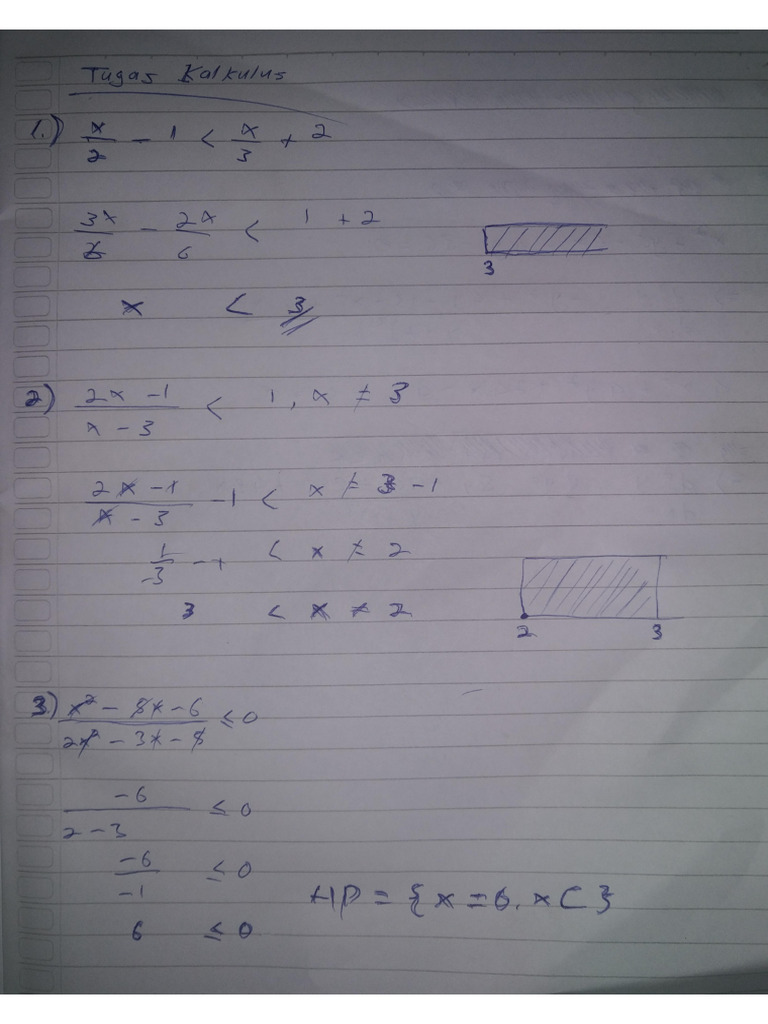 Tugas Kalkulus
1.) x/2 - 1 < x/3 + 2
3x/6 - 2x/6 < 1 + 2
x < 3
3
2) (2x - 1)/(x - 3) < 1, x ≠ 3
(2x - 1)/(x - 3) - 1 < x ≠ 3 - 1
< x ≠ 2
3 < x ≠ 2
2 3
3.) (x² - 8x - 6)/(2x² - 3x - 8) ≤ 0
-6/(2 - 3) ≤ 0
-6/-1 ≤ 0
6 ≤ 0
HP = {x = 6. x C}